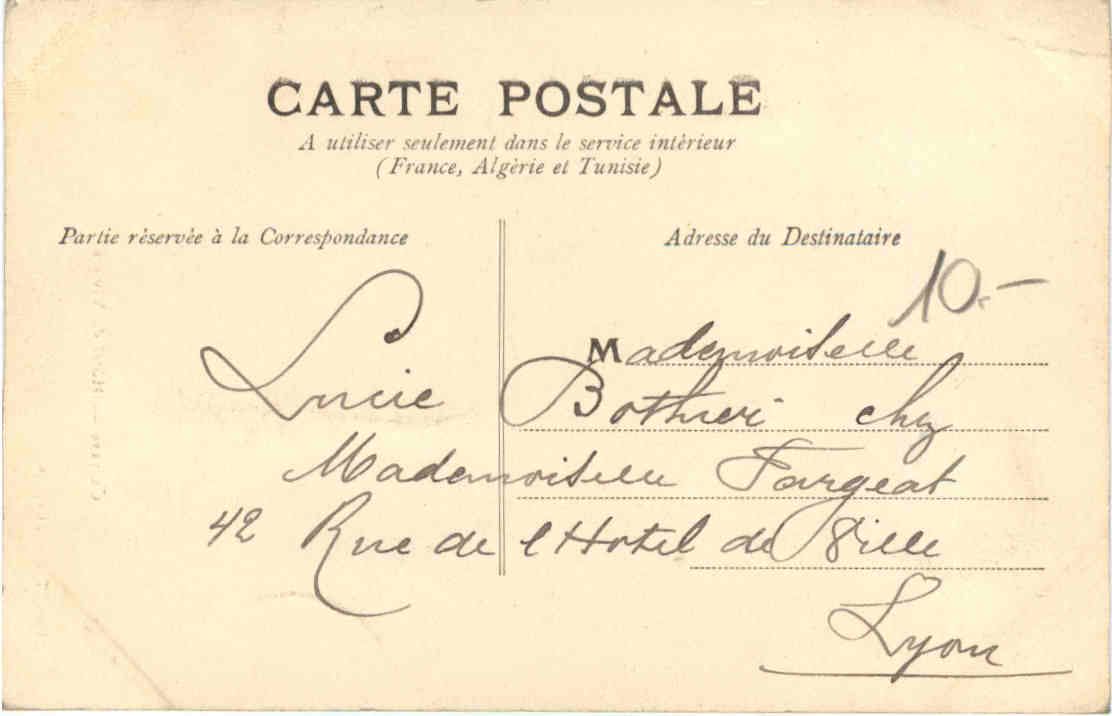 CARTE POSTALE
A utiliser seulement dans le service intèrieur
(France, Algèrie et Tunisie)
Partie rèservèe à la Correspondance
Adresse du Destinataire
10.-
Mademoiselle
Lucie Bothieri chez
Mademoiselle Fargeat
42 Rue de l'Hotel de Ville
Lyon